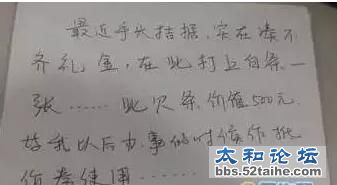 最近手头拮据,实在凑不
齐礼金,在此打上白条一
张……此欠条价值500元.
好我以后办事的时候作抵
价券使用……
太和论坛
bbs.52taihe.com